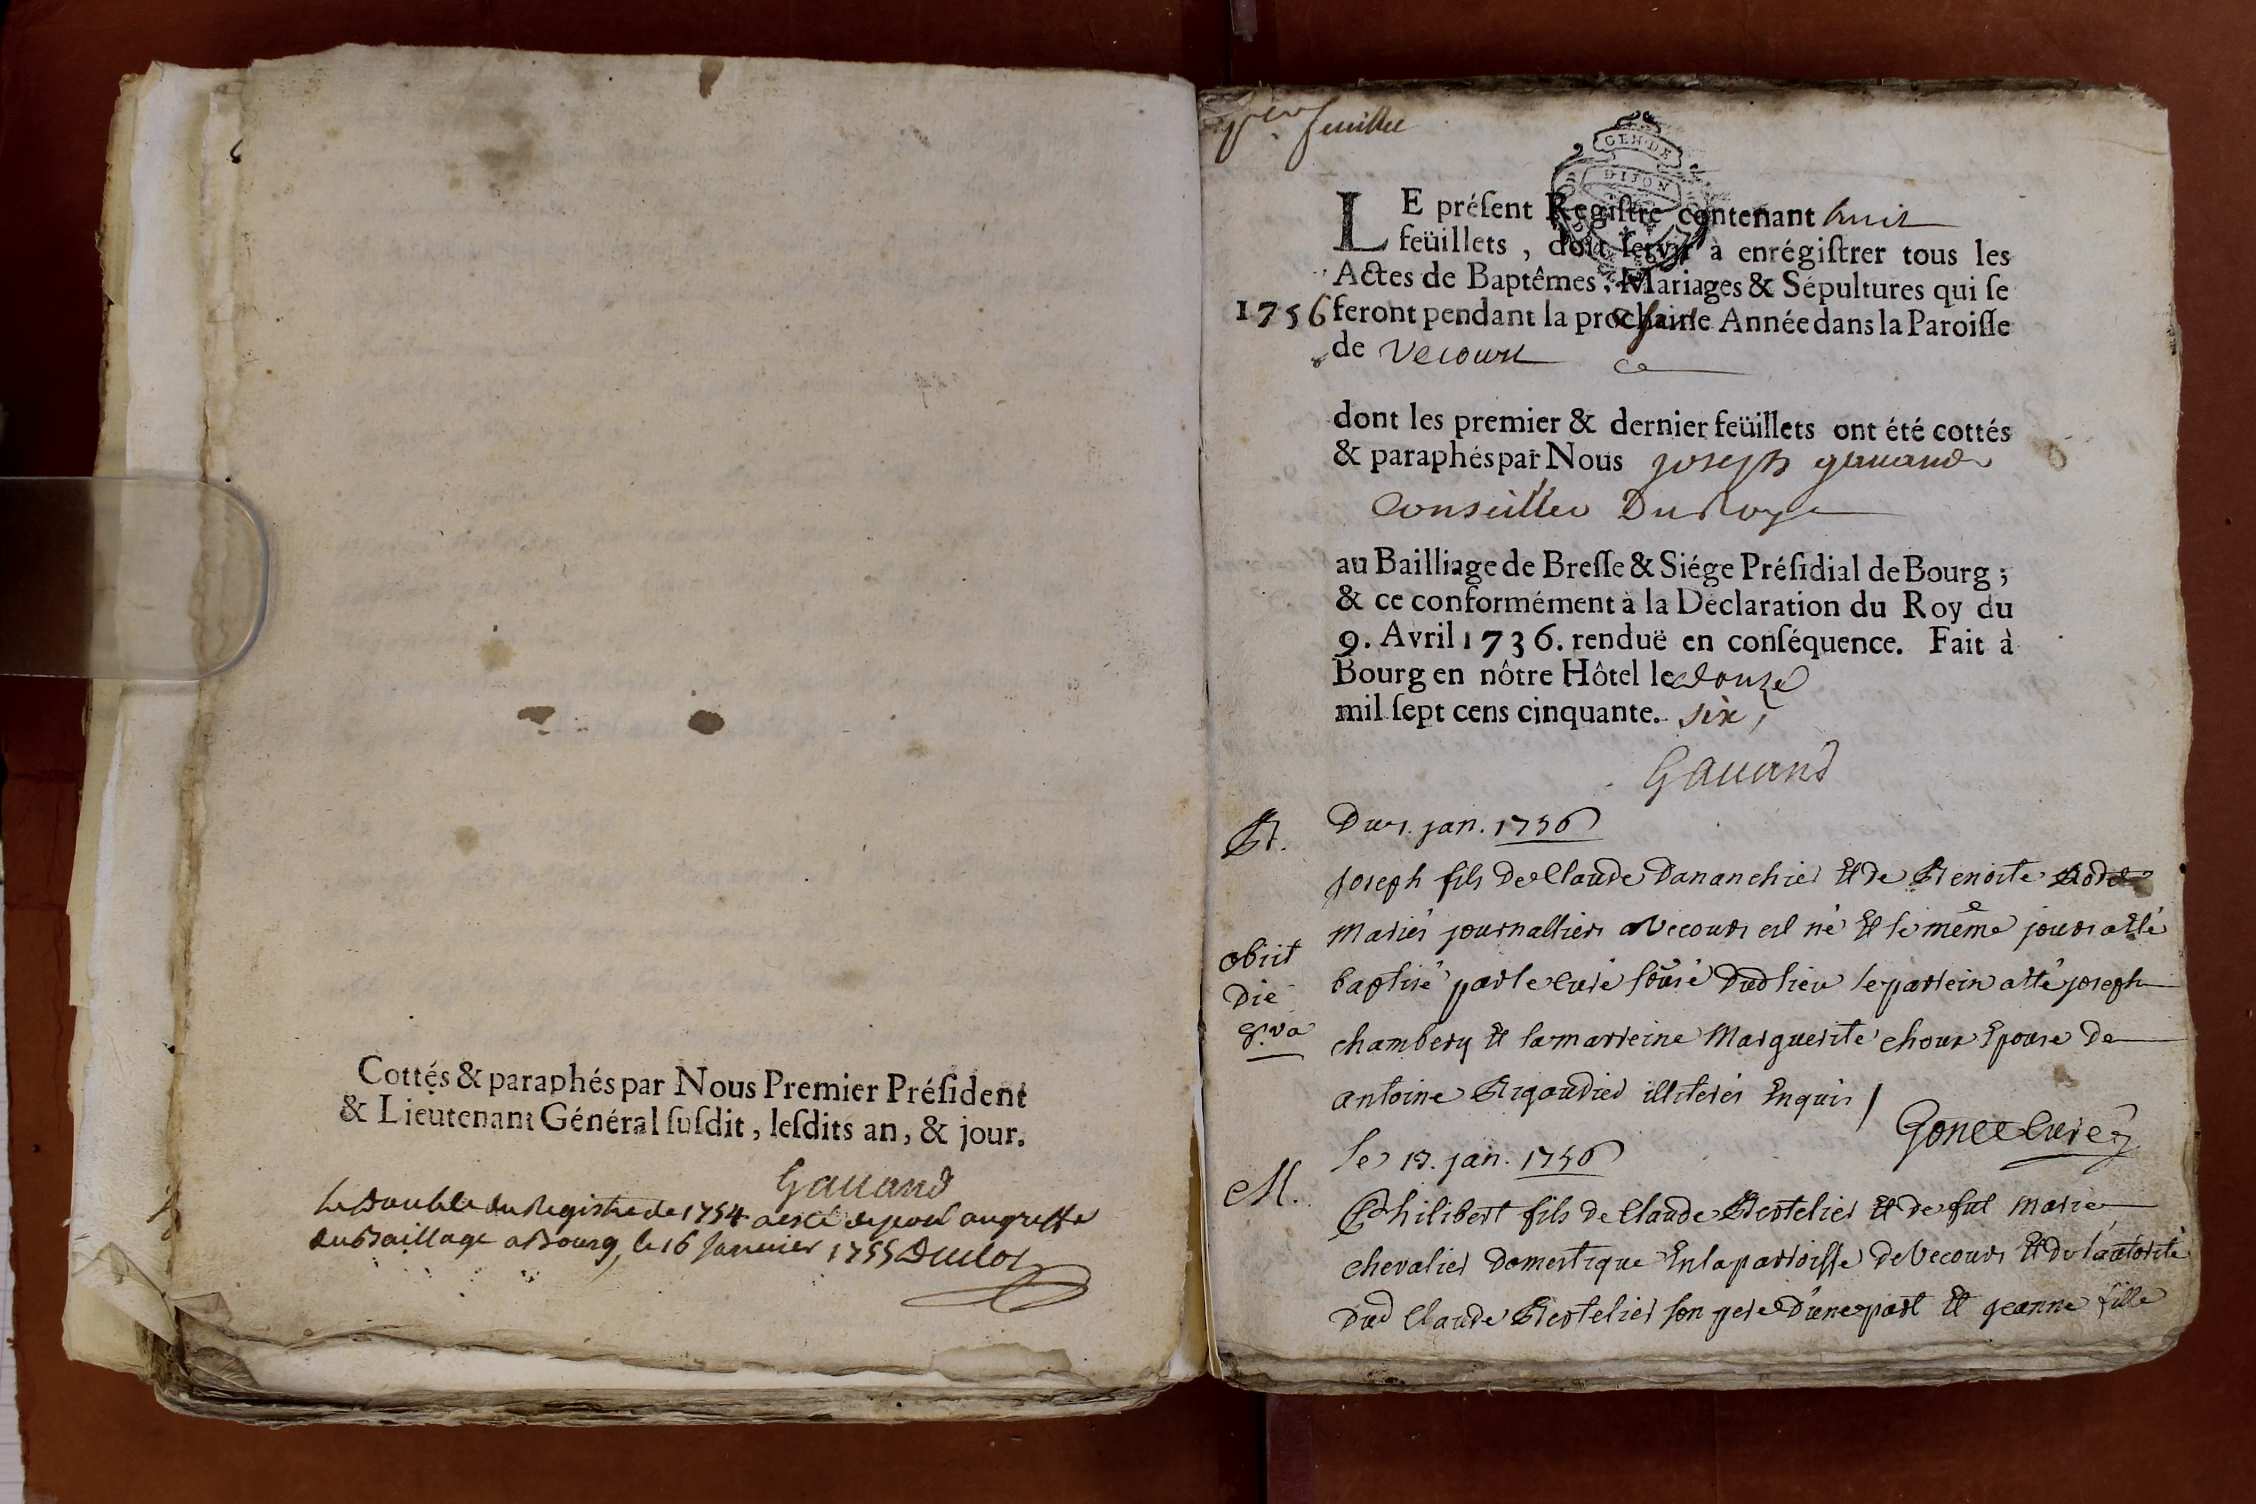 Cottés & paraphés par Nous Premier Préſident
& Lieutenant Général ſuſdit, leſdits an, & jour.
Gauand
le Double du Registre de 1754 a esté deposé au greffe
du Baillage a Bourg, le 16 Janvier 1755 Duclos
1er feuillet
GEN DE
DIJON
LE préſent Regiſtre contenant huit
feüillets, doit ſervir à enrégiſtrer tous les
Actes de Baptêmes, Mariages & Sépultures qui ſe
1756 feront pendant la prochaine Année dans la Paroiſſe
de Vecourt
dont les premier & dernier feüillets ont été cottés
& paraphés par Nous joseph gauand
Conseiller Du Roy
au Bailliage de Breſſe & Siége Préſidial de Bourg;
& ce conformément à la Déclaration du Roy du
9. Avril 1736. renduë en conſéquence. Fait à
Bourg en nôtre Hôtel le douze
mil ſept cens cinquante. six,
Gauand
B. Du jan. 1756
joseph fils de Claude Dananchier et de Benoite
Mariés journalliers a Vecours est né et le même jour a été
obiit
baptisé par le curé sousé Dud lieu le parrein a été joseph
Die
8.va
chambery et la marreine Marguerite choux Epouse De
antoine Rigaudier illiterés Enquis /
Gonet curé
le 13. jan. 1756
M.
Philibert fils de Claude Bertelier et de fut Marie
chevalier Domestique En la parroisse de Vecours et de l'autorité
Dud Claude Bertelier son pere D'une part et jeanne fille